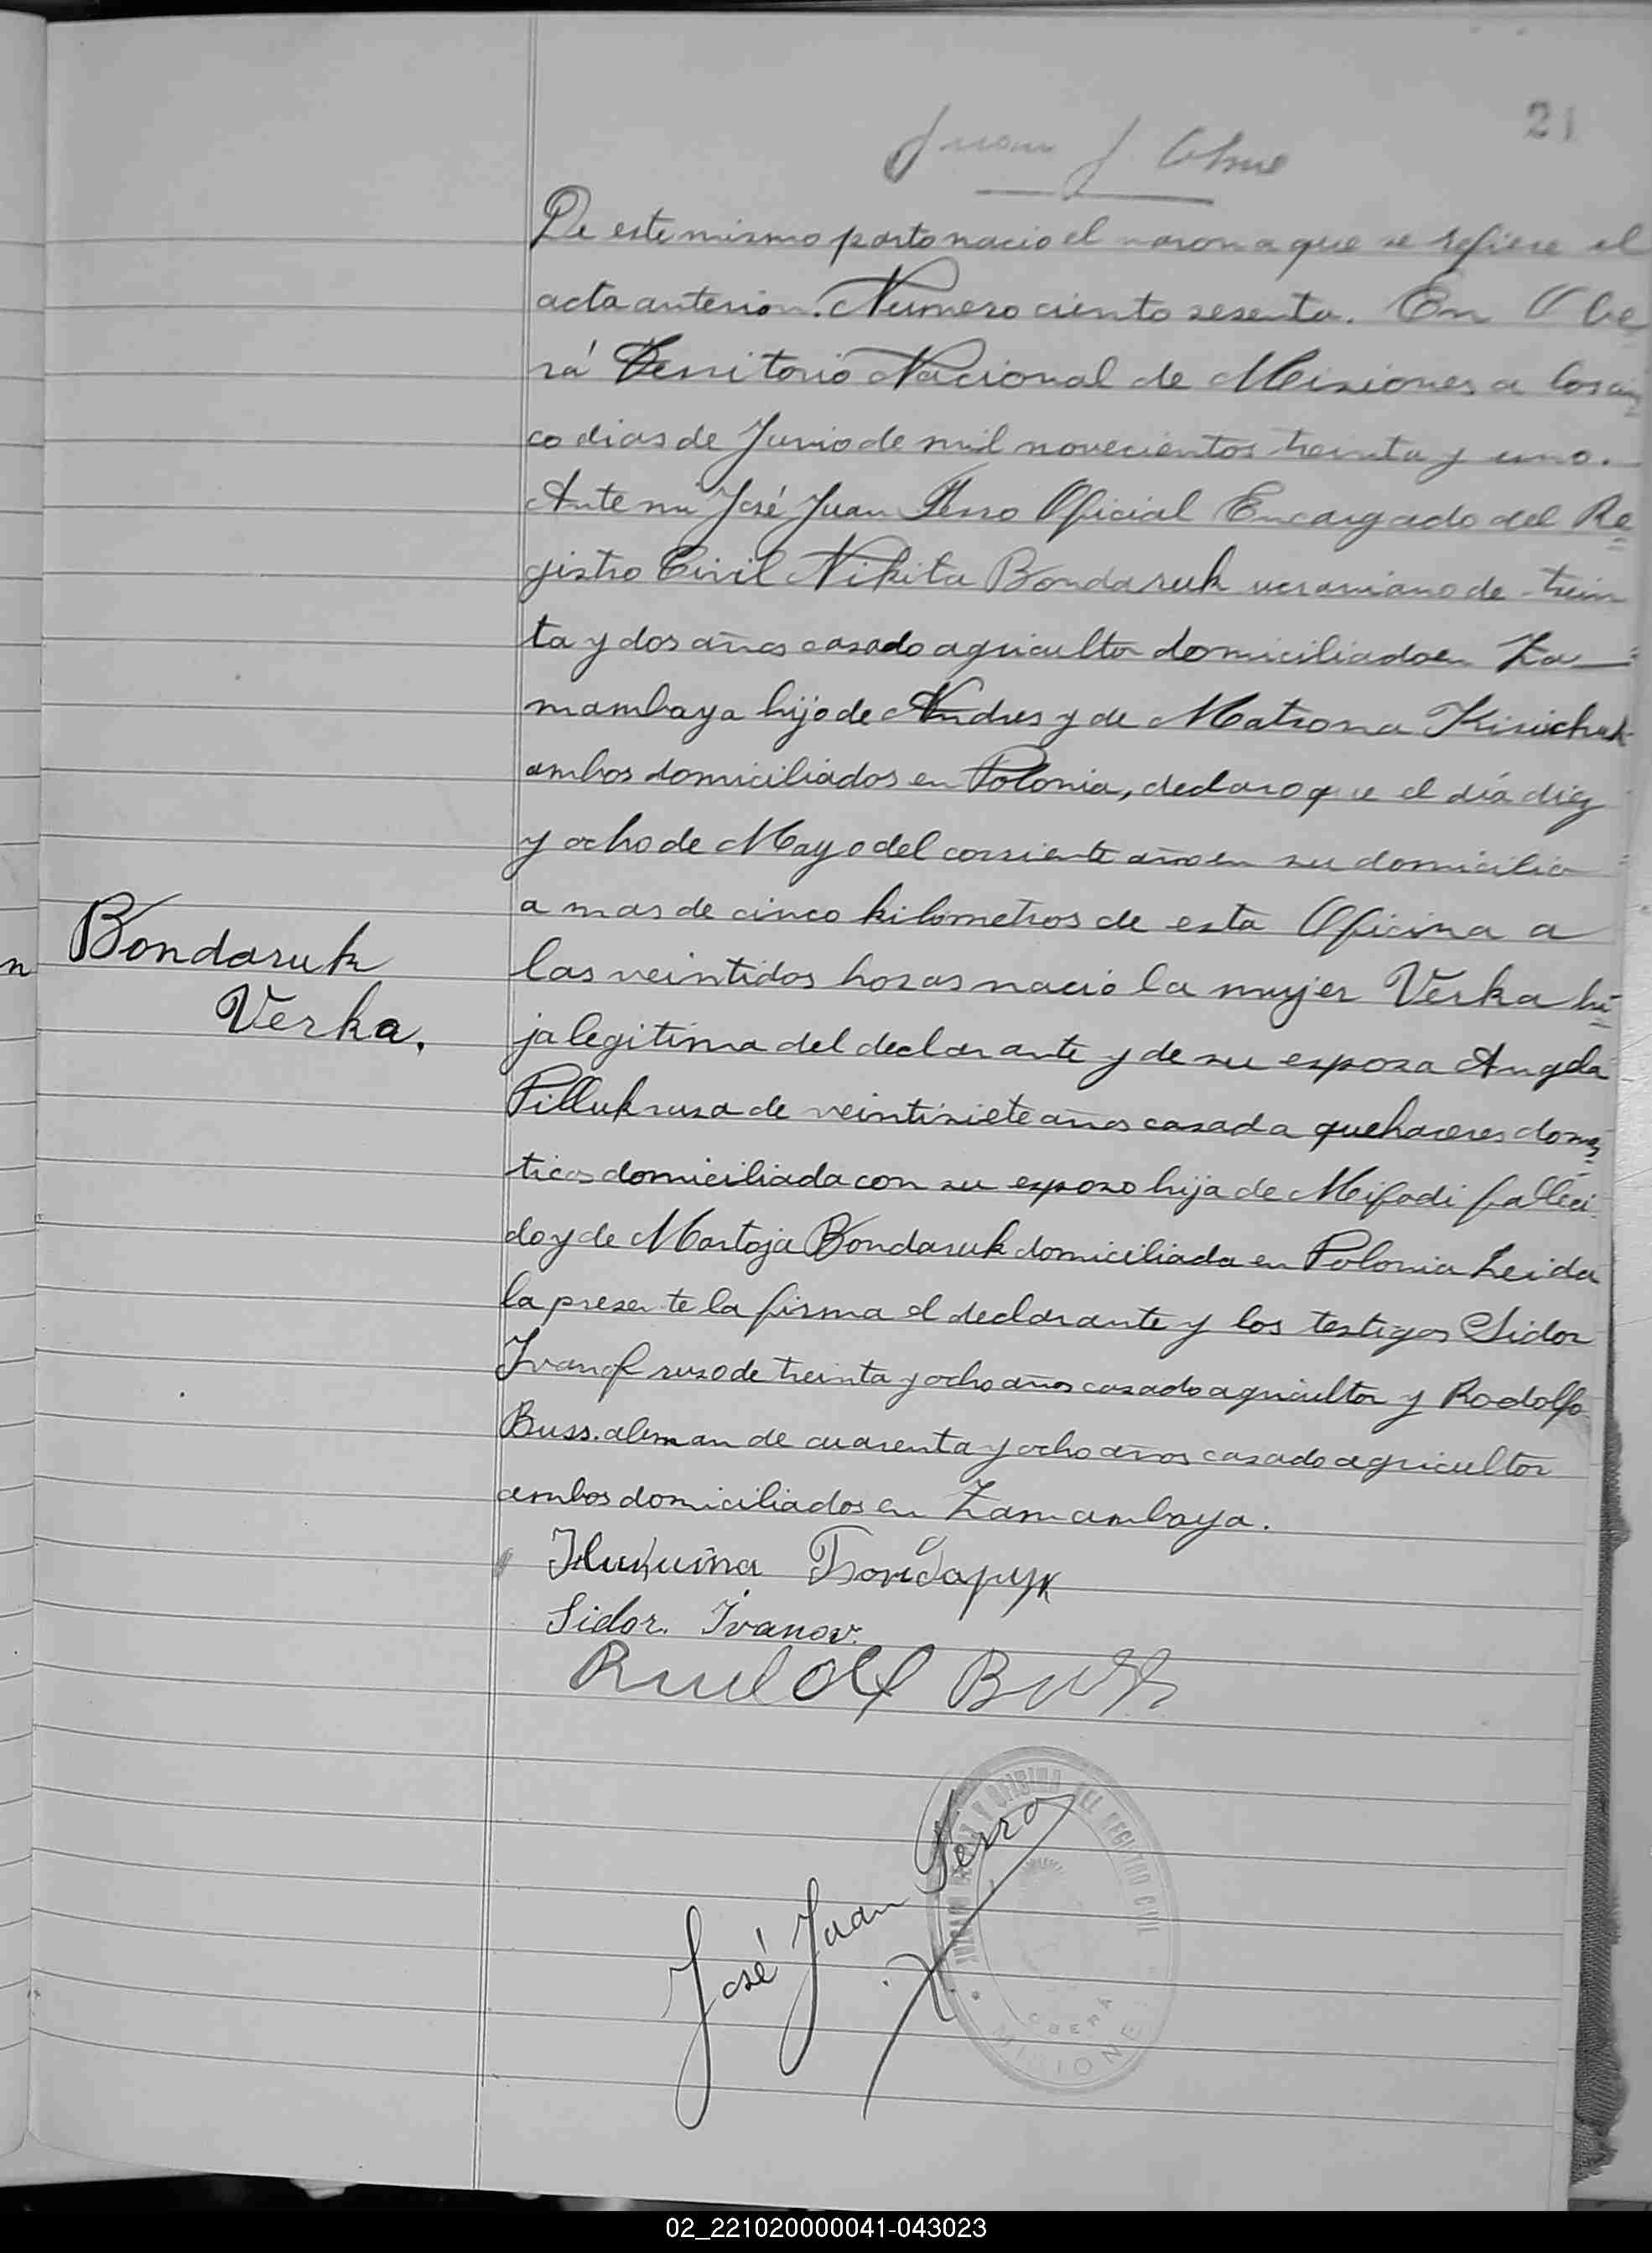 21
Juan J.
De este mismo parto nacio el varon a que se refiere el
acta anterior. Numero ciento sesenta. En Obe
rá Territorio Nacional de Misiones a los cin
co dias de Junio de mil novecientos treinta y uno.
Ante mi José Juan Ferro Oficial Encargado del Re
gistro Civil Nikita Bondaruk ucraniano de trein
ta y dos años casado agricultor domiciliado en Za
mambaya hijo de Andres y de Matrona Kirichuk
ambos domiciliados en Polonia, declaro que el día diez
y ocho de Mayo del corriente año en su domicilio
a mas de cinco kilometros de esta Oficina a
las veintidos horas nació la mujer Verka hi
Bondaruk
Verka.
n
ja legitima del declarante y de su esposa Angela
Pilluk rusa de veintisiete años casada quehaceres domes
ticos domiciliada con su esposo hija de Mifodi falleci
do y de Martoja Bondaruk domiciliada en Polonia Leida
la presente la firma el declarante y los testigos Sidor
Ivanof ruso de treinta y ocho años casado agricultor y Rodolfo
Buss. aleman de cuarenta y ocho años casado agricultor
ambos domiciliados en Zamambaya.
Никита Бондарук
Sidor. Ivanov.
Rudolf Buss
José Juan Ferro
JUZGADO DE PAZ Y OFICINA DEL REGISTRO CIVIL
OBERÁ
MISIONES
02_221020000041-043023